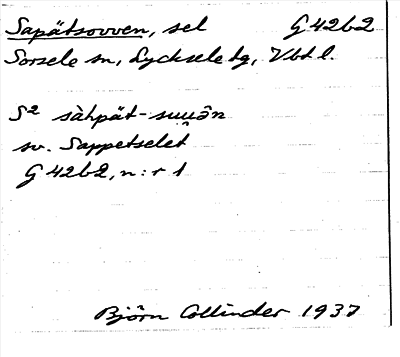 Sapätsovven, sel G 42b2
Sorsele sn, Lycksele tg, Vbt l.
S² sàhpät-
sv. Sappetselet
G 42b2, n:r 1
Björn Collinder 1937